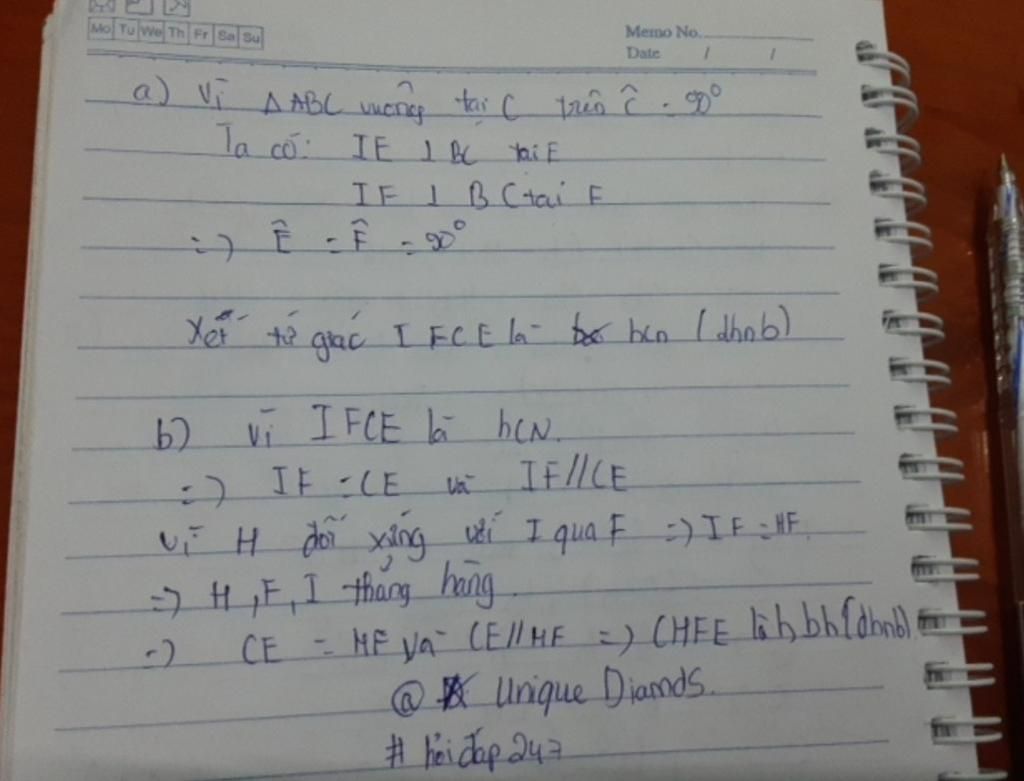 Mo Tu We Th Fr Sa Su
Memo No.
Date / /
a) Vì ΔABC vuông tại C trên Ĉ = 90°
Ta có: IE ⊥ BC tại E
IF ⊥ BC tại F
=> Ê = F̂ = 90°
Xét tứ giác IFCE là hcn (dhnb)
b) Vì IFCE là hCN.
=> IF = CE và IF//CE
Vì H đối xứng với I qua F => IF = HF.
=> H, F, I thẳng hàng.
=> CE = HF và CE//HF => CHFE là hbh (dhnb)
@ Unique Diamds.
# hỏi đáp 247